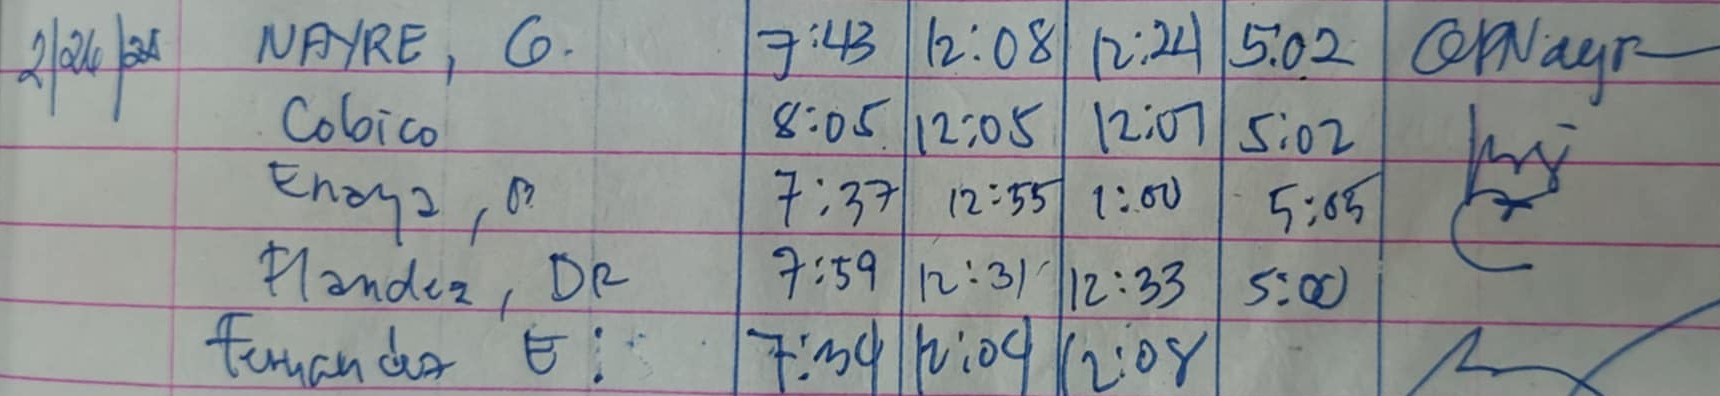 2/24/25 NAYRE, G. 7:43 12:08 12:24 5:02 GPNayr
Cobico 8:05 12:05 12:07 5:02
Enaya, 7:37 12:55 1:00 5:05
Flandez, DR 7:59 12:31 12:33 5:00
Fernandez E: 7:34 12:04 12:08